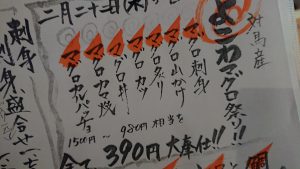 対馬産
よこわマグロ祭り!!
二月二十二日(木)
マグロ刺身
マグロ山かけ
マグロ炙り
マグロカツ
マグロ丼
マグロカマ焼
マグロカルパッチョ
150円~980円相当を
390円大奉仕!!
刺身
刺身盛合せ